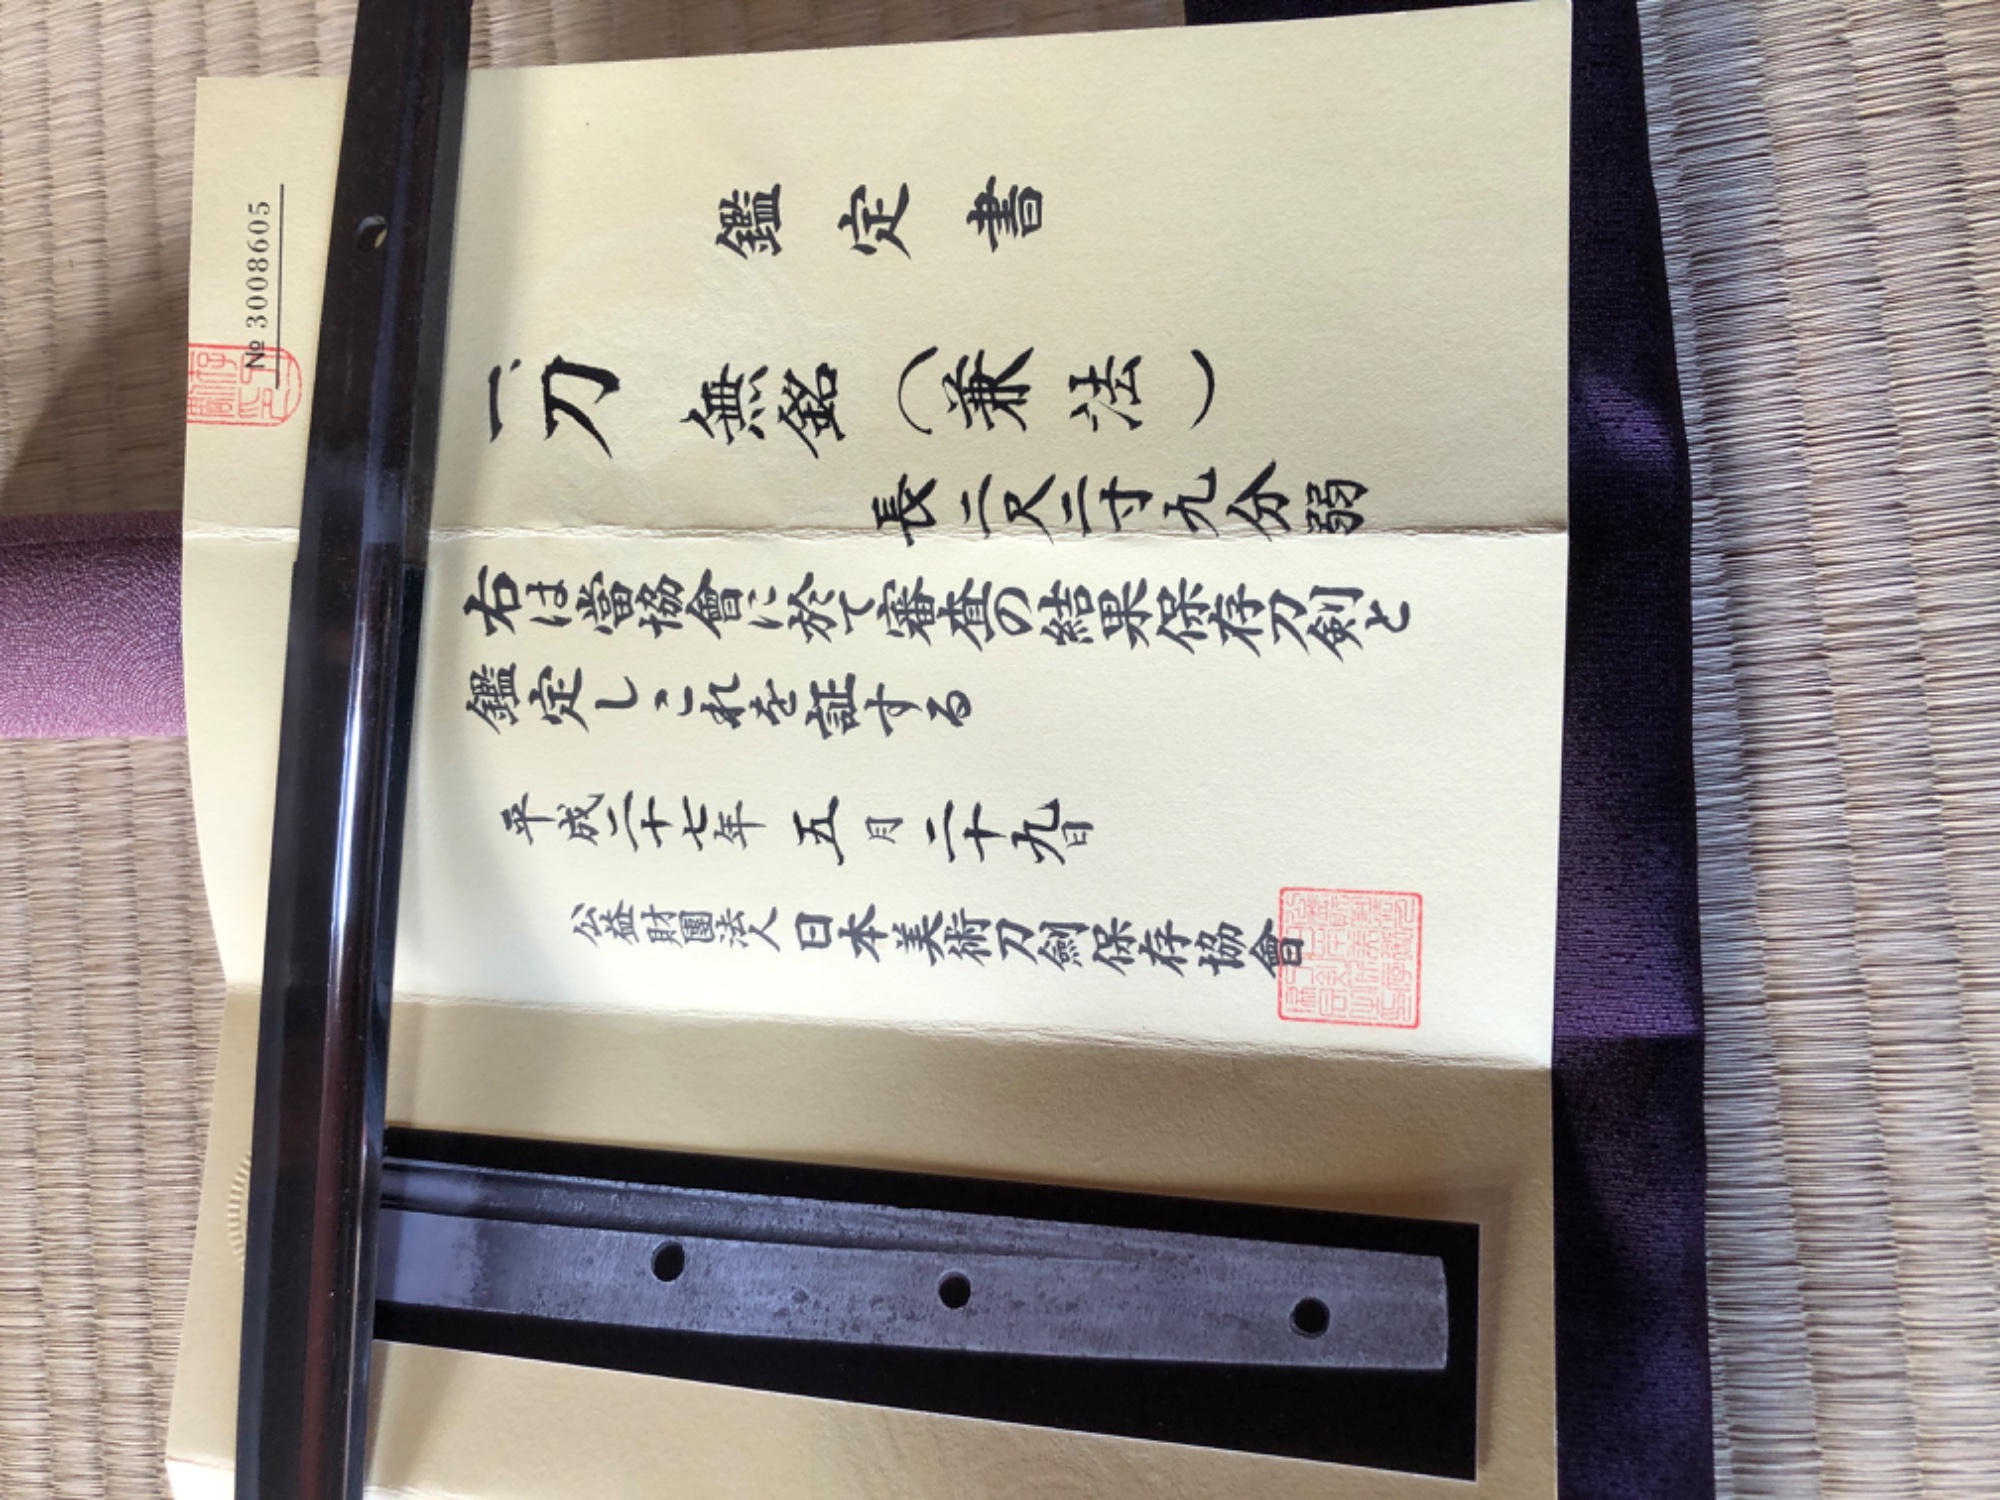 № 3008605
鑑定書
一、刀 無銘（兼法）
長二尺二寸九分弱
右は當協會に於て審査の結果保存刀剣と
鑑定しこれを証する
平成二十七年 五月 二十九日
公益財團法人 日本美術刀劍保存協會